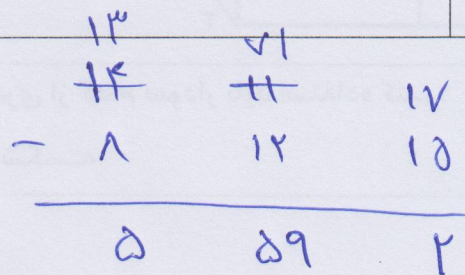 ۱۳ ۷۱
۱۴ ۱۱ ۱۷
- ۸ ۱۲ ۱۵
۵ ۵۹ ۲